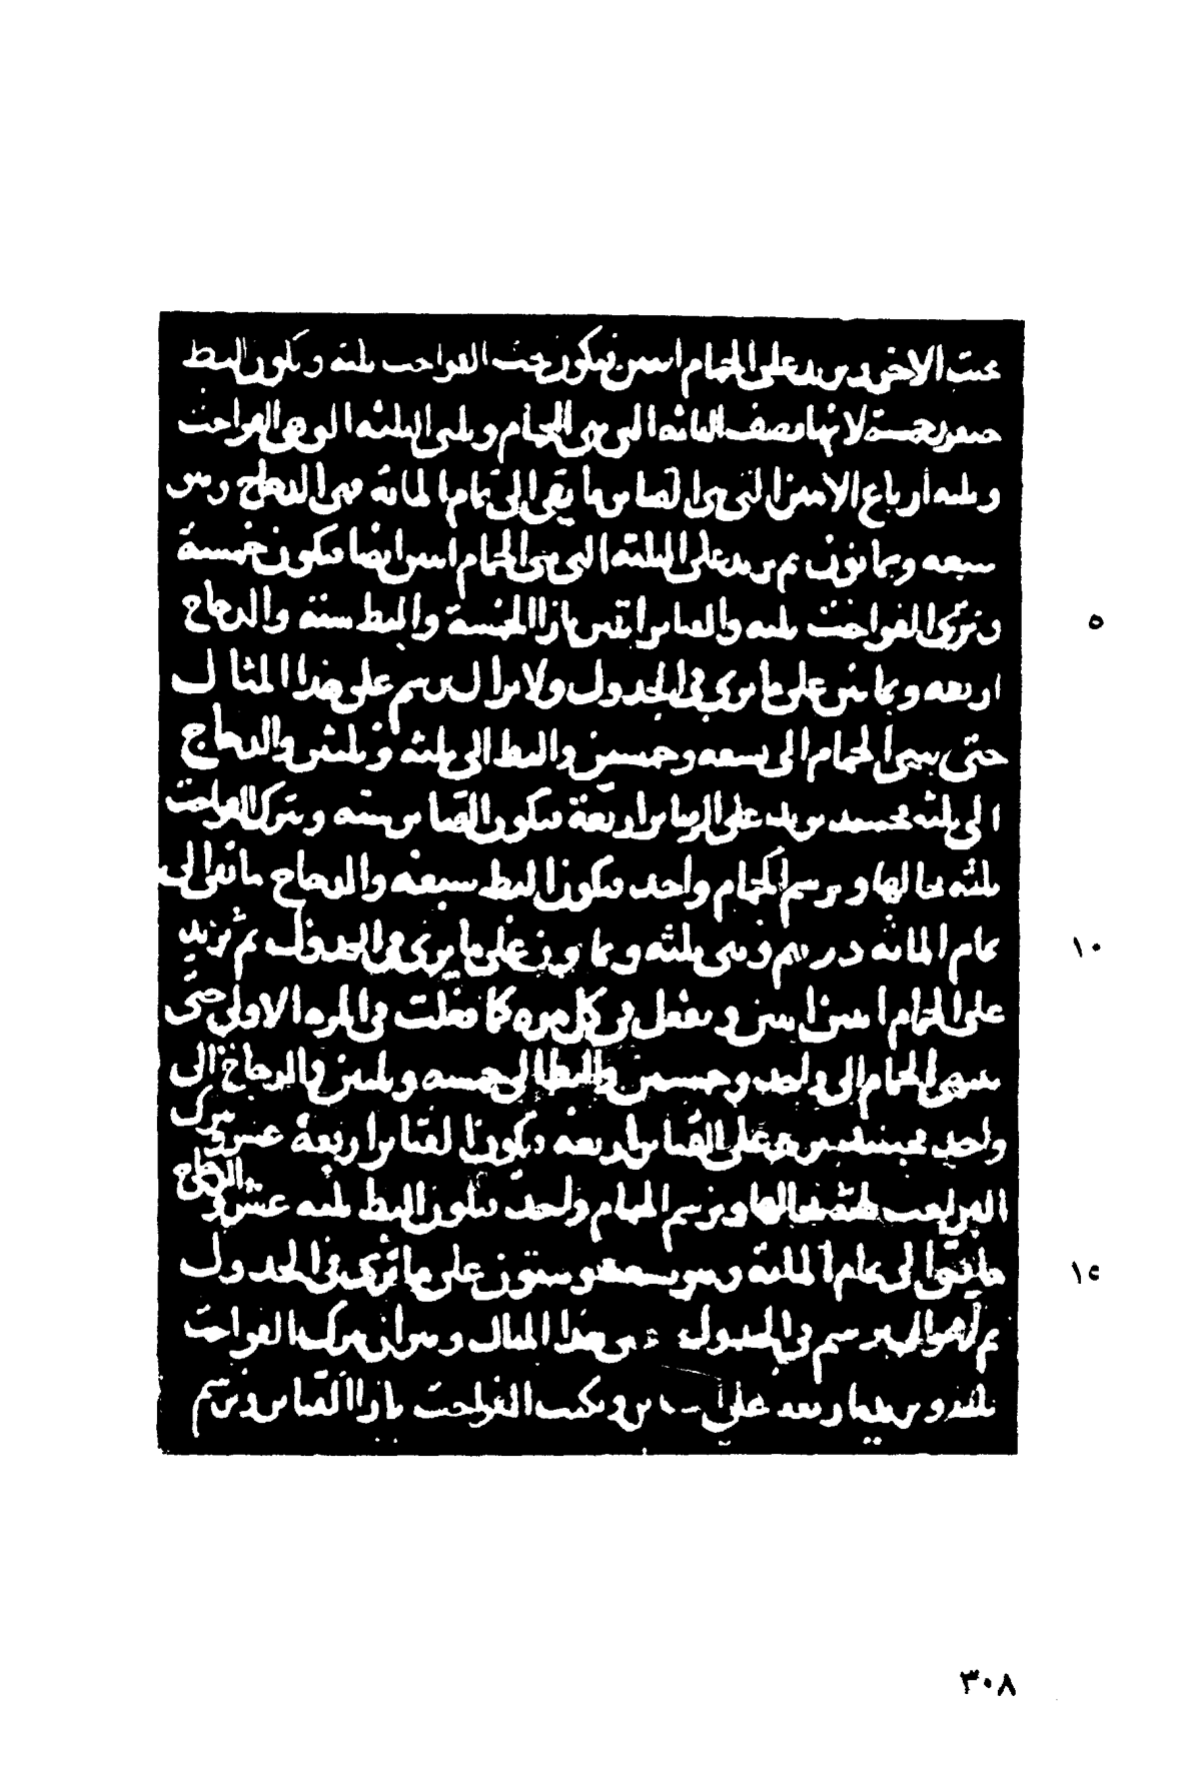 تحت الاخر ثم يزيد على الحمام اثنين فيكون تحت الفواخت ثلثه ويكون البط
لانها نصف الثمانيه التى هى الحمام وثلثى الثلثه التى هى الفواخت
وثلثه أرباع الاثنين التى هى القنابر ما بقى الى تمام المائة فهى الدجاج وهى
سبعه وثمانون ثم يزيد على الثلثه التى هى الحمام اثنين ايضا فيكون خمسة
وتترك الفواخت ثلثه والقنابر اثنين بازا الخمسة والبط ستة والدجاج
اربعه وثمانين على ما ترى فى الجدول ولا يزال يرسم على هذا المثال
حتى ينتهى الحمام الى تسعه وخمسين والبط الى ثلثه وثلثين والدجاج
الى ثلثه فحينئذ يزيد على القنابر اربعة فيكون القنابر سته ويترك الفواخت
ثلثه بحالها ويرسم الحمام واحد فيكون البط سبعه والدجاج ما بقى الى
تمام المائه درهم وهى ثلثه وثمانون على ما ترى فى الجدول ثم تزيد
على الحمام اثنين اثنين وتفعل فى كل مره كما فعلت فى المره الاولى حتى
ينتهى الحمام الى واحد وخمسين والبط الى خمسه وثلثين والدجاج الى
واحد فحينئذ يزيد على القنابر اربعه فيكون القنابر اربعة عشر وتترك
الفواخت ثلثه بحالها ويرسم الحمام واحد فيكون البط ثلثه عشر والدجاج
ما بقى الى تمام المائه وهو سبعه وستون على ما ترى فى الجدول
ثم لا يزال يرسم فى الجدول على هذا المثال وهو ان يترك الفواخت
ثلثه ويزيد اربعه على القنابر ويكتب الفواخت بازا القنابر ويرسم
٥
١٠
١٥
٣٠٨